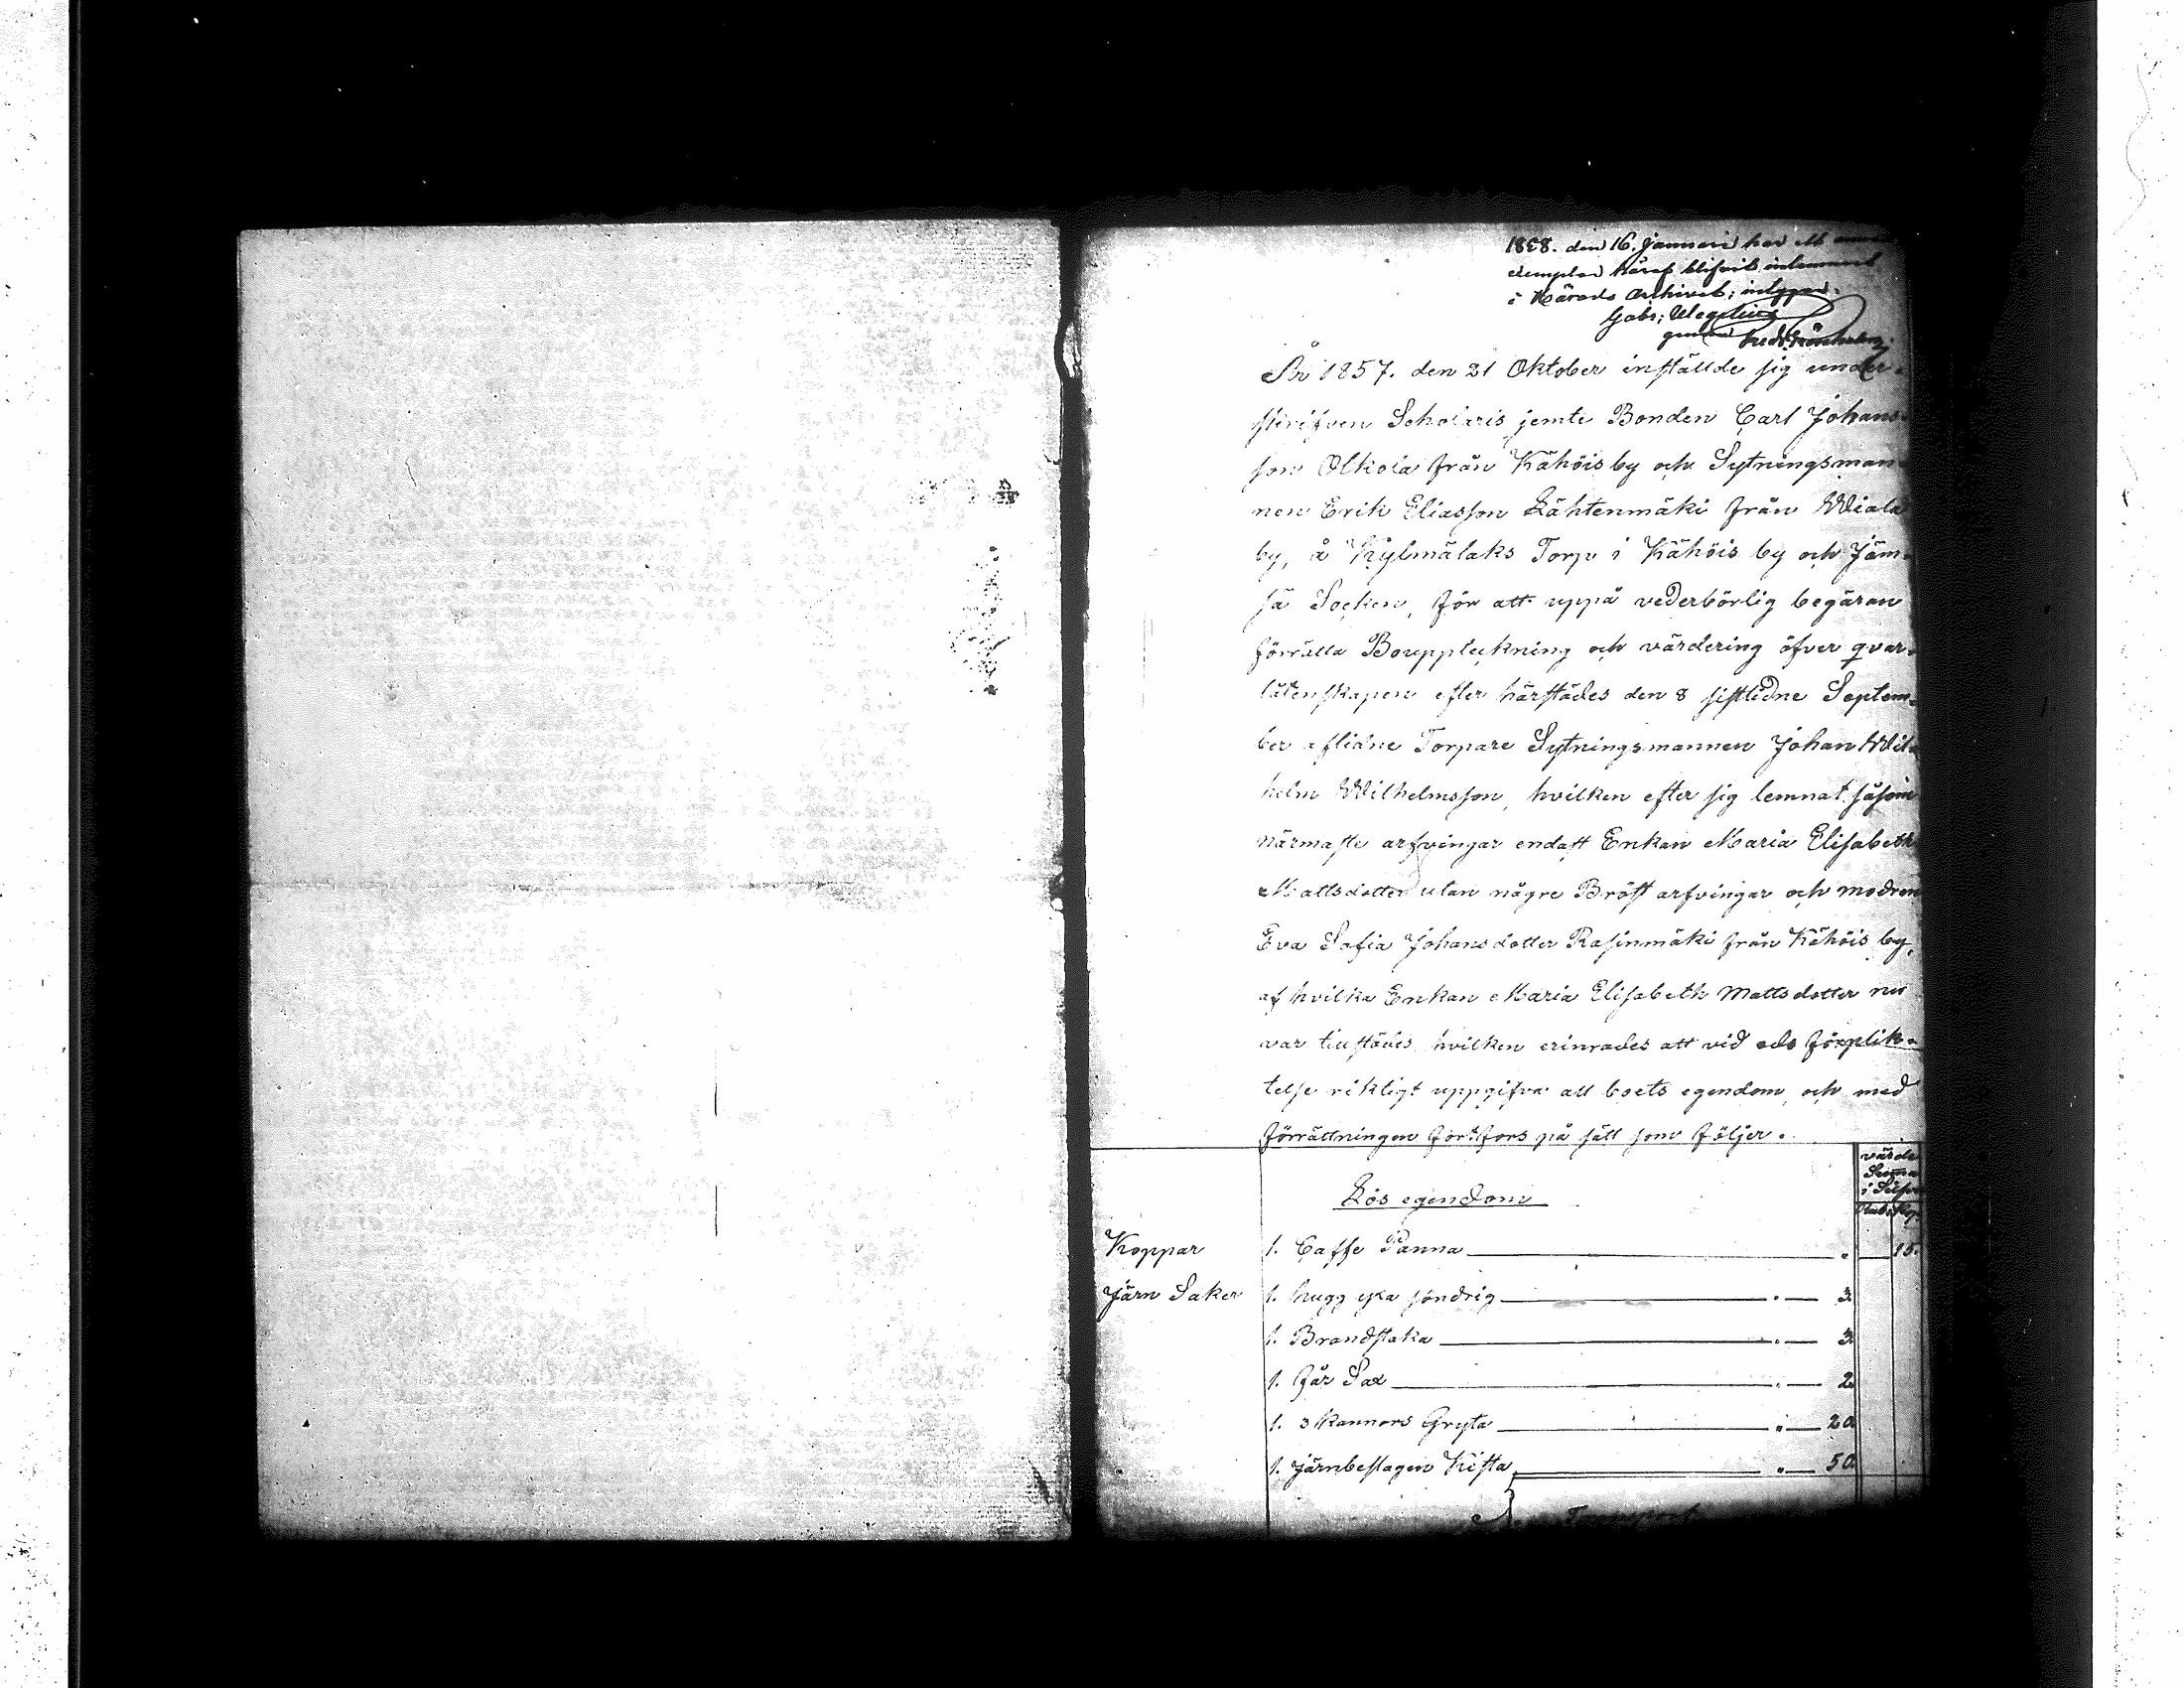 1858. den 16. Januari har ett
exemplar häraf blifvit inlemnadt
i Härads Archivet; intygar.
Gabr; Wegelius
genom
År 1857. den 21 Oktober inställde sig under-
skrifven Scholaris jemte Bonden Carl Johans-
son Olkola från Kähöis by och Sytningsman-
nen Erik Eliasson Lähtenmäki från Wiala
by, å Kylmälaks Torp i Kähöis by och Jäm-
sä Socken, för att uppå vederbörlig begäran
förrätta Bouppteckning och värdering öfver qvar-
låtenskapen efter härstädes den 8 sistlidne Septem-
ber aflidne Torpare Sytningsmannen Johan Wil-
helm Wilhelmsson, hvilken efter sig lemnat såsom
närmaste arfvingar endast Enkan Maria Elisabeth
Mattsdotter utan någre Bröst arfvingar och modren
Eva Sofia Johansdotter Rasinmäki från Kähöis by,
af hvilka Enkan Maria Elisabeth Mattsdotter nu
var tillstädes, hvilken erinrades att vid eds förplik-
telse riktigt uppgifva all boets egendom, och med
förrättningen fortfors på sätt som följer.
värde
Summa
i Silfver
Rub. Kop.
Lös egendom
Koppar 1. Caffe Panna 15.
Järn Saker 1. hugg yxa söndrig " 3.
1. Brandstaka " 3.
1. Får Sax " 2.
1. 3 Kannors Gryta " 20.
1. Järnbeslagen Kista " 50.
Transport